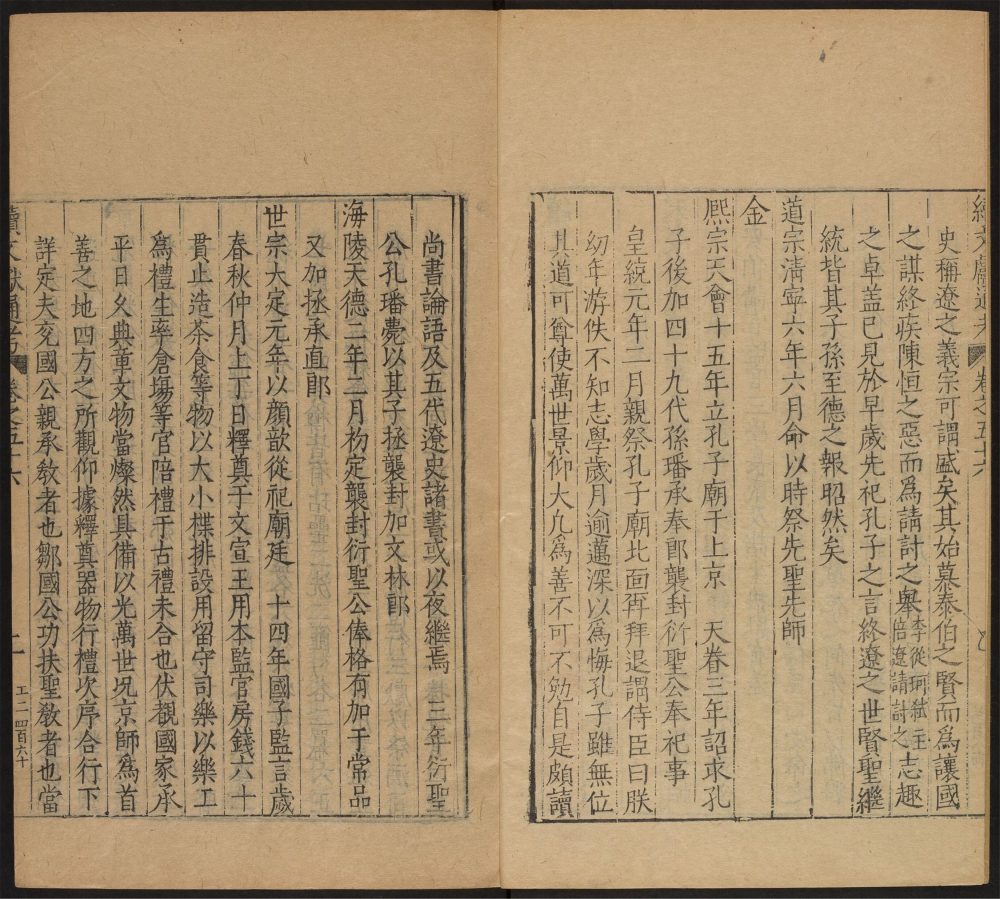 續文獻通考 卷之五十六
史稱遼之義宗可謂盛矣其始慕泰伯之賢而為讓國
之謀終疾陳恒之惡而為請討之舉李從珂弒主倍遼請討之志趣
之卓盖已見於早歲先祀孔子之言終遼之世賢聖繼
統皆其子孫至德之報昭然矣
道宗清寧六年六月命以時祭先聖先師
金
熈宗天會十五年立孔子廟于上京 天眷三年詔求孔
子後加四十九代孫璠承奉郎襲封衍聖公奉祀事
皇統元年二月親祭孔子廟北面再拜退謂侍臣曰朕
幼年游佚不知志學歲月逾邁深以為悔孔子雖無位
其道可尊使萬世景仰大凡為善不可不勉自是頗讀
尚書論語及五代遼史諸書或以夜繼焉 三年衍聖
公孔璠薨以其子拯襲封加文林郎
海陵天德二年二月初定襲封衍聖公俸格有加于常品
又加拯承直郎
世宗大定元年以顔歆從祀廟廷 十四年國子監言歲
春秋仲月上丁日釋奠于文宣王用本監官房錢六十
貫止造茶食等物以大小楪排設用留守司樂以樂工
為禮生率倉場等官陪禮于古禮未合也伏覩國家承
平日久典章文物當燦然具備以光萬世况京師為首
善之地四方之所觀仰據釋奠器物行禮次序合行下
詳定夫兖國公親承敎者也鄒國公功扶聖敎者也當
續文獻通考 卷之五十六 工二 四百六十